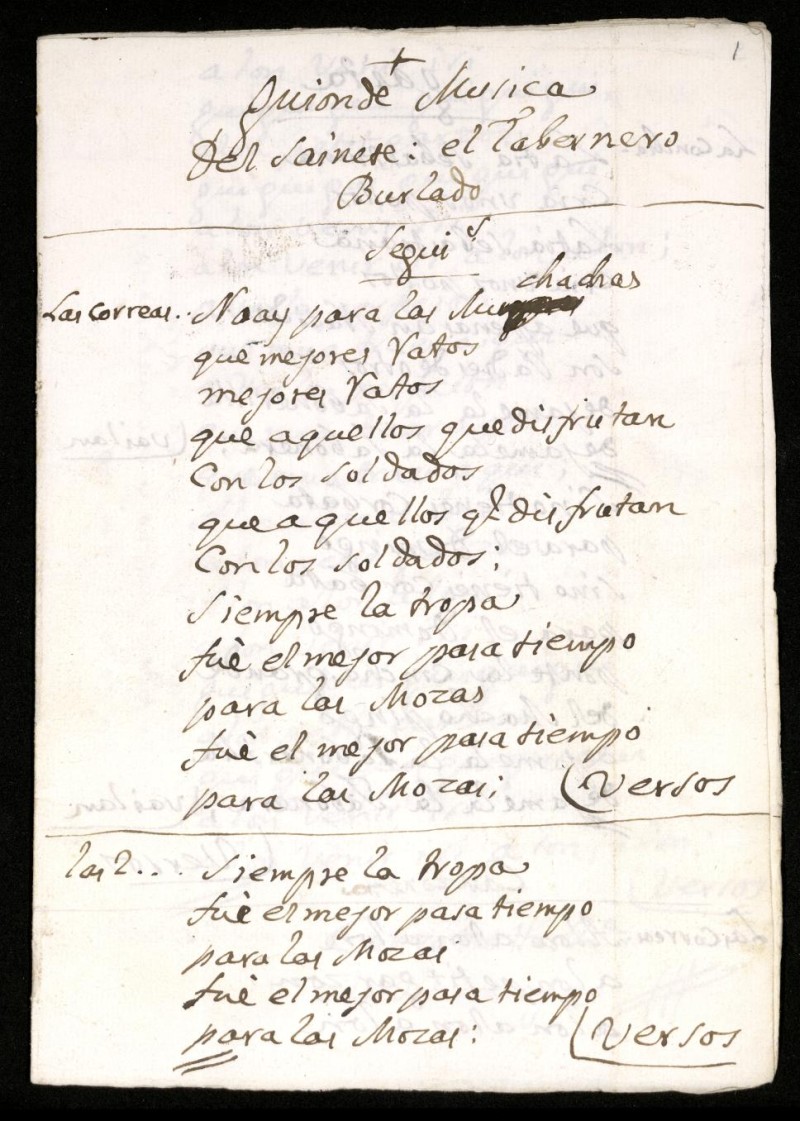 1
+
Guion de Musica
Del Sainete: el Tabernero
Burlado
Segui.s
Las Correas.. No ay para las Muchachas
que mejores Ratos
mejores Ratos
que aquellos que disfrutan
Con los soldados
que aquellos q.e disfrutan
Con los soldados;
Siempre la tropa
fuè el mejor pasatiempo
para las Mozas
fuè el mejor pasatiempo
para las Mozas; (Versos
las 2... Siempre la tropa
fuè el mejor pasatiempo
para las Mozas
fuè el mejor pasatiempo
para las Mozas: (Versos